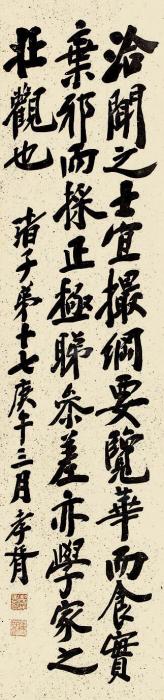 洽聞之士宜撮綱要覽華而食實
棄邪而採正極睇參差亦學家之
壯觀也
諸子弟十七庚午三月孝胥